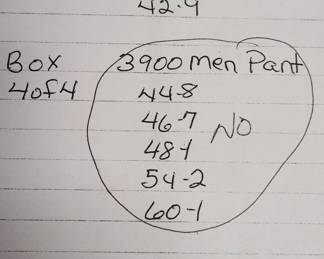 42-9
Box 3900 Men Pant
4 of 4 44-8
46-7 NO
48-1
54-2
60-1